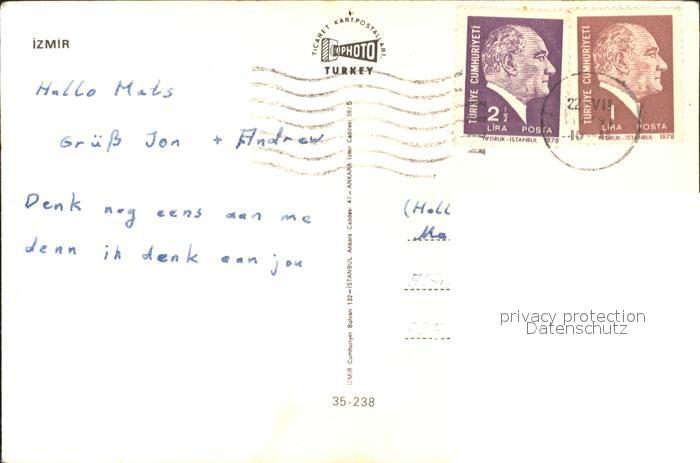 İZMİR
TİCARET KARTPOSTALLARI
PHOTO
TURKEY
TÜRKİYE CUMHURİYETİ
2 1/2
LİRA POSTA
DRUK-İSTANBUL 1978
TÜRKİYE CUMHURİYETİ
1
LİRA POSTA
DRUK-İSTANBUL 1978
Hallo Mats
Grüß Jon + Andrew
Denk nog eens aan me
denn ik denk aan jou
İZMİR Cumhuriyet Bulvarı 132-İSTANBUL Ankara Caddesi 47-ANKARA İzmir Caddesi 38/5
35-238
(Holl
privacy protection
Datenschutz